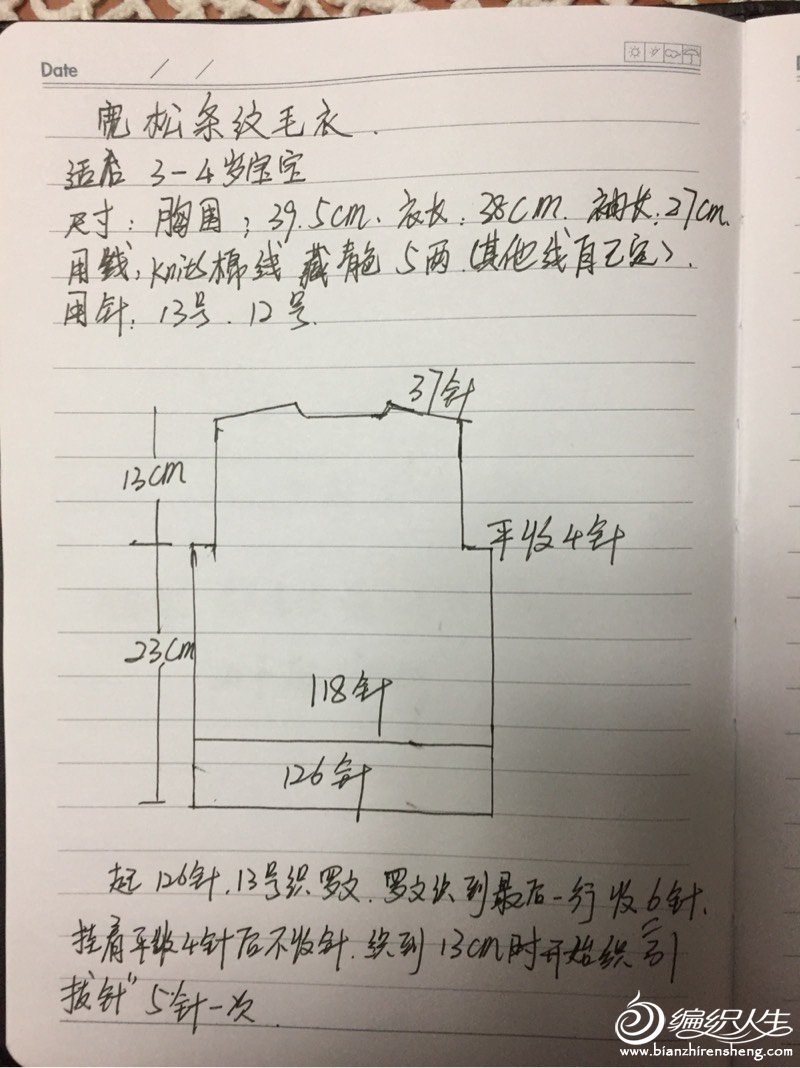 Date / /
宽松条纹毛衣.
适合 3-4岁宝宝
尺寸: 胸围: 39.5cm. 衣长: 38cm. 袖长: 27cm.
用线: knits棉线 藏青色 5两 (其他线自己定).
用针: 13号. 12号.
37针
13cm
平收4针
23cm
118针
126针
起126针. 13号织罗文. 罗文织到最后一行收6针.
挂肩平收4针后不收针. 织到13cm时开始织"引
拔针" 5针一次.
编织人生
www.bianzhirensheng.com